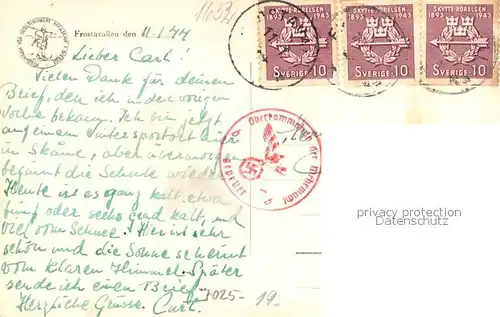 1653
Frostavallen den 11/1.44
SKYTTE-RÖRELSEN
1893 1943
SVERIGE 10
SKYTTE-RÖRELSEN
1893 1943
SVERIGE 10
SKYTTE-RÖRELSEN
1893 1943
SVERIGE 10
Lieber Carl!
Vielen Dank für deinen
Brief, den ich in der vorigen
Woche bekam. Ich bin jetzt
auf einem Wintersportort hier
in Skåne, aber übermorgen
beginnt die Schule wieder.
Heute ist es ganz kalt, etwa
fünf oder sechs grad kalt, und
viel vom Schnee. Hier ist sehr
schön und die Sonne scheint
vom klaren Himmel. Später
sende ich einen Brief.
Herzliche Grüsse. Curt.
Oberkommando der Wehrmacht
geprüft
b
privacy protection watermark
AnsichtskartenVersand.com
T025-
19.-